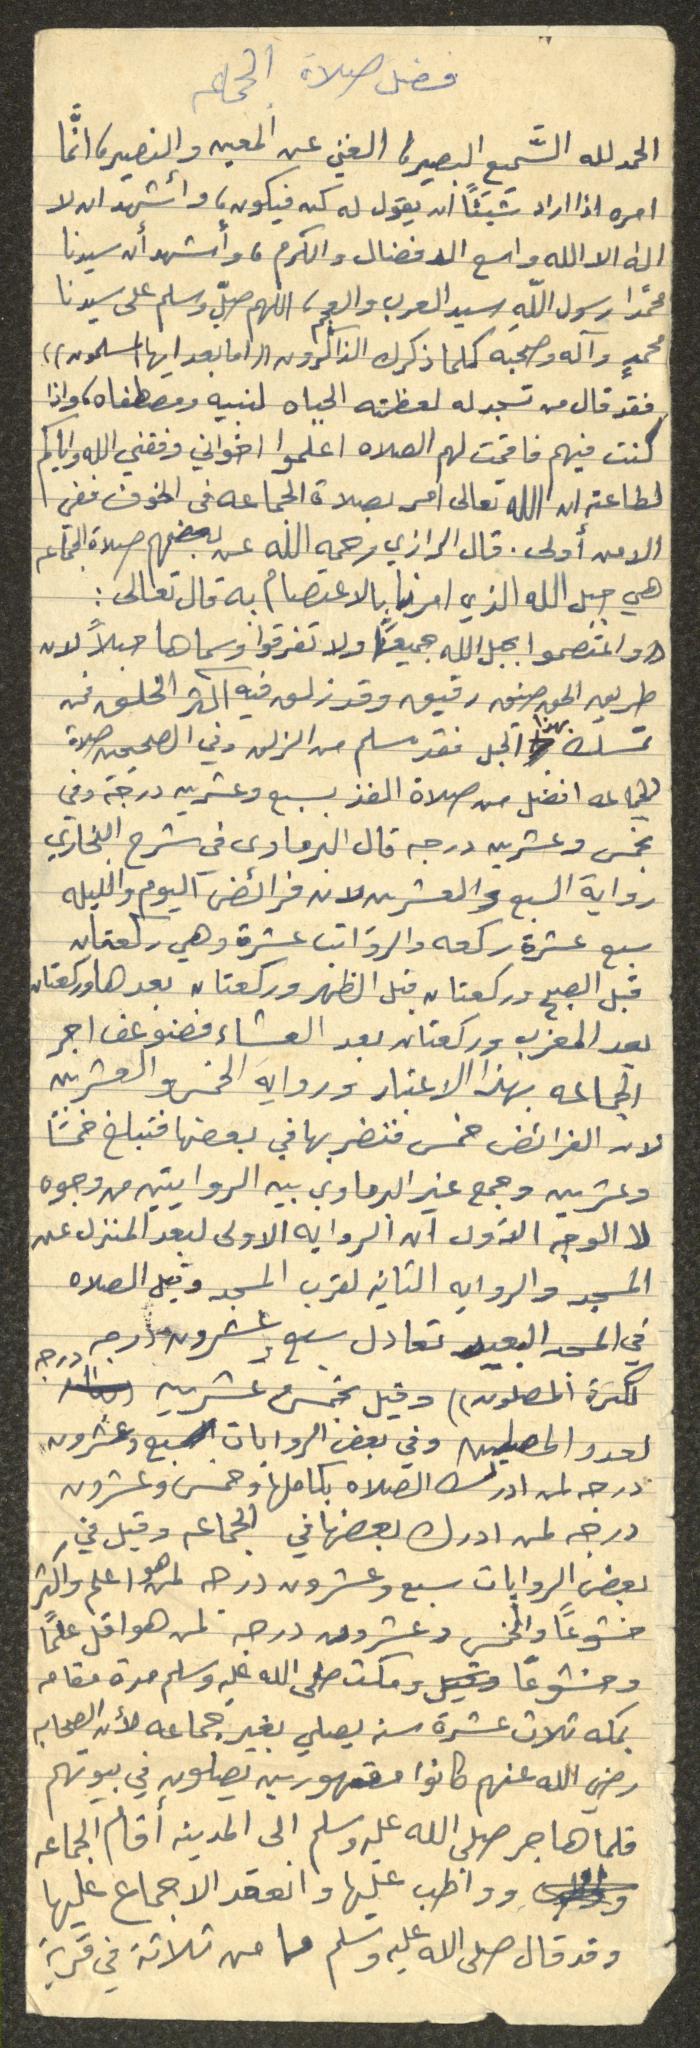 فضل صلاة الجماعه
الحمد لله السَّميع البصير، الغني عن المعين والنصير، انَّما
امره اذا اراد شيئًا ان يقول له كن فيكون، وأشهد ان لا
اله الا الله واسع الافضال والكرم، وأشهد أن سيدنا
محمدًا رسول اللهِ سيد العرب والعجم، اللهم صلِّ وسلم على سيدنا
محمدٍ وآله وصحبه كلما ذكرك الذاكرون ((اما بعد ايها المسلمون))
فقد قال من تسجد له لعظمته الجباه لنبيه ومصطفاه، واذا
كنت فيهم فاقمت لهم الصلاه اعلموا اخواني وفقني الله واياكم
لطاعته ان الله تعالى أمر بصلاة الجماعه فى الخوف ففي
الامن أولى. قال الرازي رحمه الله عن بعضهم صلاة الجماعه
هي حبل الله الذي امرنا بالاعتصام به قال تعالى:
((واعتصموا بحبل الله جميعًا ولا تفرقوا وسماها حبلاً لان
طريق الحق ضيق رقيق وقد زلق فيه اكثر الخلق فمن
تمسك بهذا الحبل فقد سلم من الزلق وفي الصحيحين صلاة
الجماعه افضل من صلاة الفذ بسبع وعشرين درجة وفي
بخمس وعشرين درجه قال البرماوى في شرح البخاري
رواية السبع والعشرين لان فرائض اليوم والليله
سبع عشرة ركعه والرواتب عشرة وهي ركعتان
قبل الصبح وركعتان قبل الظهر وركعتان بعدها وركعتان
بعد المغرب وركعتان بعد العشاء فضوعف اجر
الجماعه بهذا الاعتبار ورواية الخمس والعشرين
لان الفرائض خمس فتضربها في بعضها فتبلغ خمسًا
وعشرين وجمع غير البرماوي بين الروايتين من وجوه
الوجه الاول ان الروايه الاولى لبعد المنزل عن
المسجد والروايه الثانيه لقرب المسجد وقيل الصلاه
في المسجد البعيد تعادل سبع وعشرون درجه
لكثرة المصلون)) وقيل بخمس عشرين درجه
لعدد المصلين وفي بعض الروايات سبع وعشرون
درجه لمن ادرك الصلاه بكاملها وخمس وعشرون
درجه لمن ادرك بعضها في الجماعه وقيل في
بعض الروايات سبع وعشرون درجه لمن هو اعلم واكثر
خشوعًا والخمس وعشرون درجة لمن هو اقل علمًا
وخشوعًا ومكث صلى الله عليه وسلم مدة مقامه
بمكه ثلاث عشرة سنه يصلي بغير جماعه لأن الصحابه
رضي الله عنهم كانوا مقهورين يصلون في بيوتهم
فلما هاجر صلى الله عليه وسلم الى المدينه أقام الجماعه
وواظب عليها وانعقد الاجماع عليها
وقد قال صلى الله عليه وسلم ما من ثلاثة في قرية